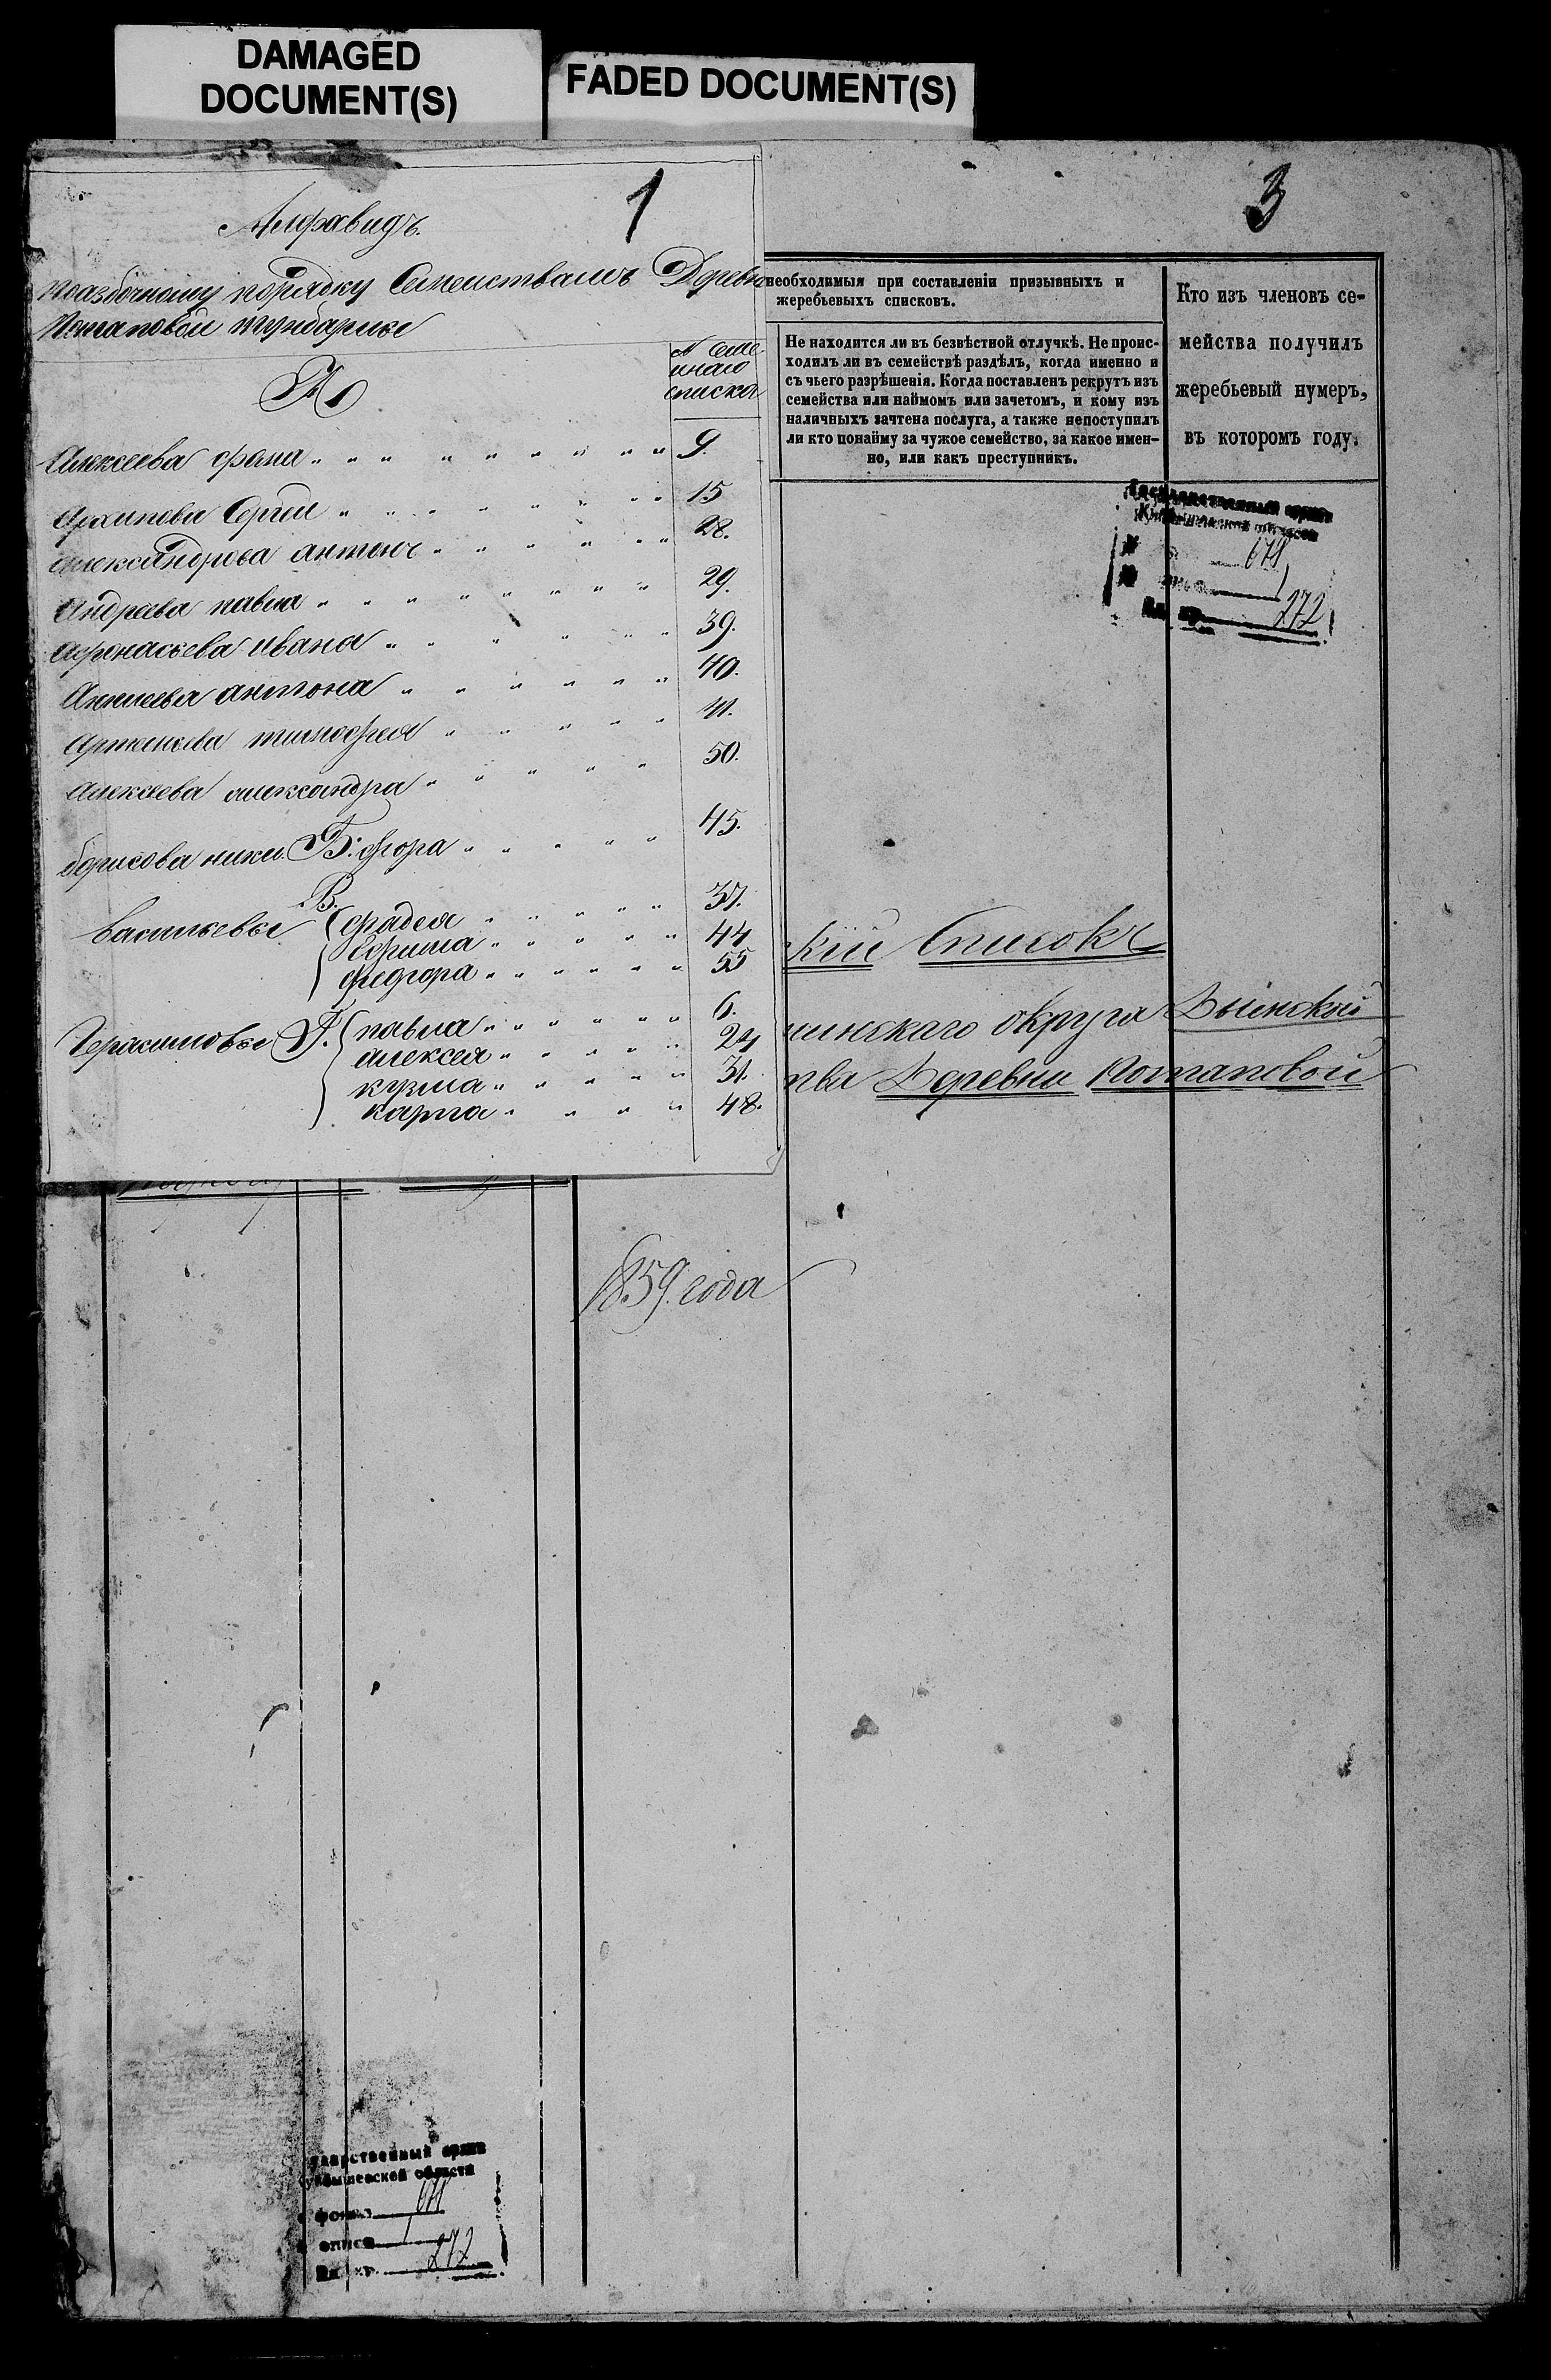 DAMAGED
DOCUMENT(S)
FADED DOCUMENT(S)
1
Алфавидъ.
поазбучному порядку Семеиствамъ Деревн
Потаповой тунбарике
№ Семе-
инаго
списка
А
Алексеева фома 9.
Архипова Сергеи 15
Александрова антонъ 28.
Андреева павла 29.
Афонасьева ивана 39.
антона 40.
тимофея 41.
Алексеева александра 50.
Б.
борисова ники фора 45.
В.
Васильевы фадея 37.
ефима 44
федора 55
Г.
Герасимовы павла 6.
алексея 24
кузма 31.
карпа 48.
3
необходимыя при составленіи призывныхъ и
жеребьевыхъ списковъ.
Не находится ли въ безвѣстной отлучкѣ. Не проис-
ходилъ ли въ семействѣ раздѣлъ, когда именно и
съ чьего разрѣшенія. Когда поставленъ рекрутъ изъ
семейства или наймомъ или зачетомъ, и кому изъ
наличныхъ зачтена послуга, а также непоступилъ
ли кто понайму за чужое семейство, за какое имен-
но, или какъ преступникъ.
Кто изъ членовъ се-
мейства получилъ
жеребьевый нумеръ,
въ которомъ году.
Государственный архив
Куйбышевской области
671
1
272
кій Списокъ
минскаго округа
тва Деревни Потаповой
1859. года
ударственный архив
уйбышевской области
фонд 671
описи 1
Ед. хр. 272